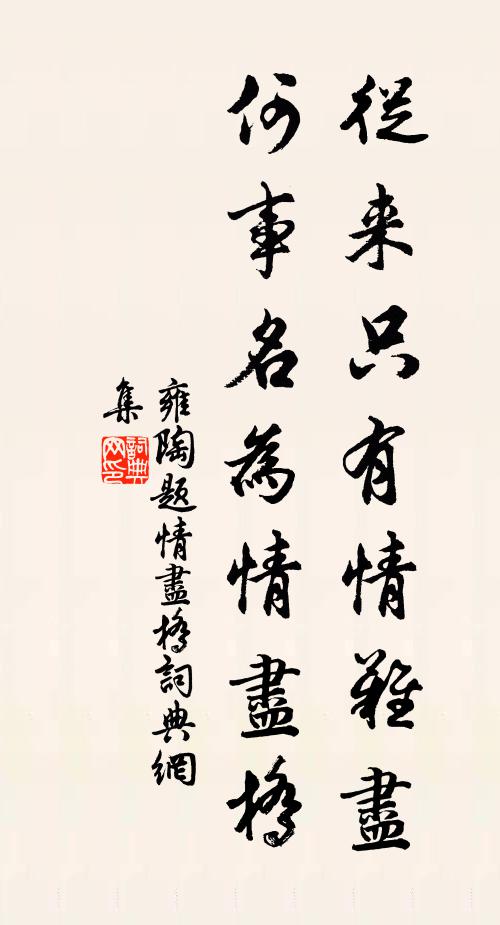 從来只有情難盡
何事名為情盡橋
雍陶題情盡橋詞典網
集
詞典
网印